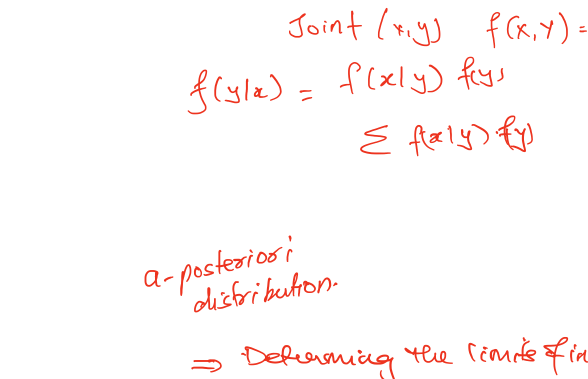 Joint (x,y) f(x,y) =
f(y|x) = f(x|y) f(y)
Σ f(x|y) f(y)
a-posteriori
distribution.
⇒ Determining the limits of in